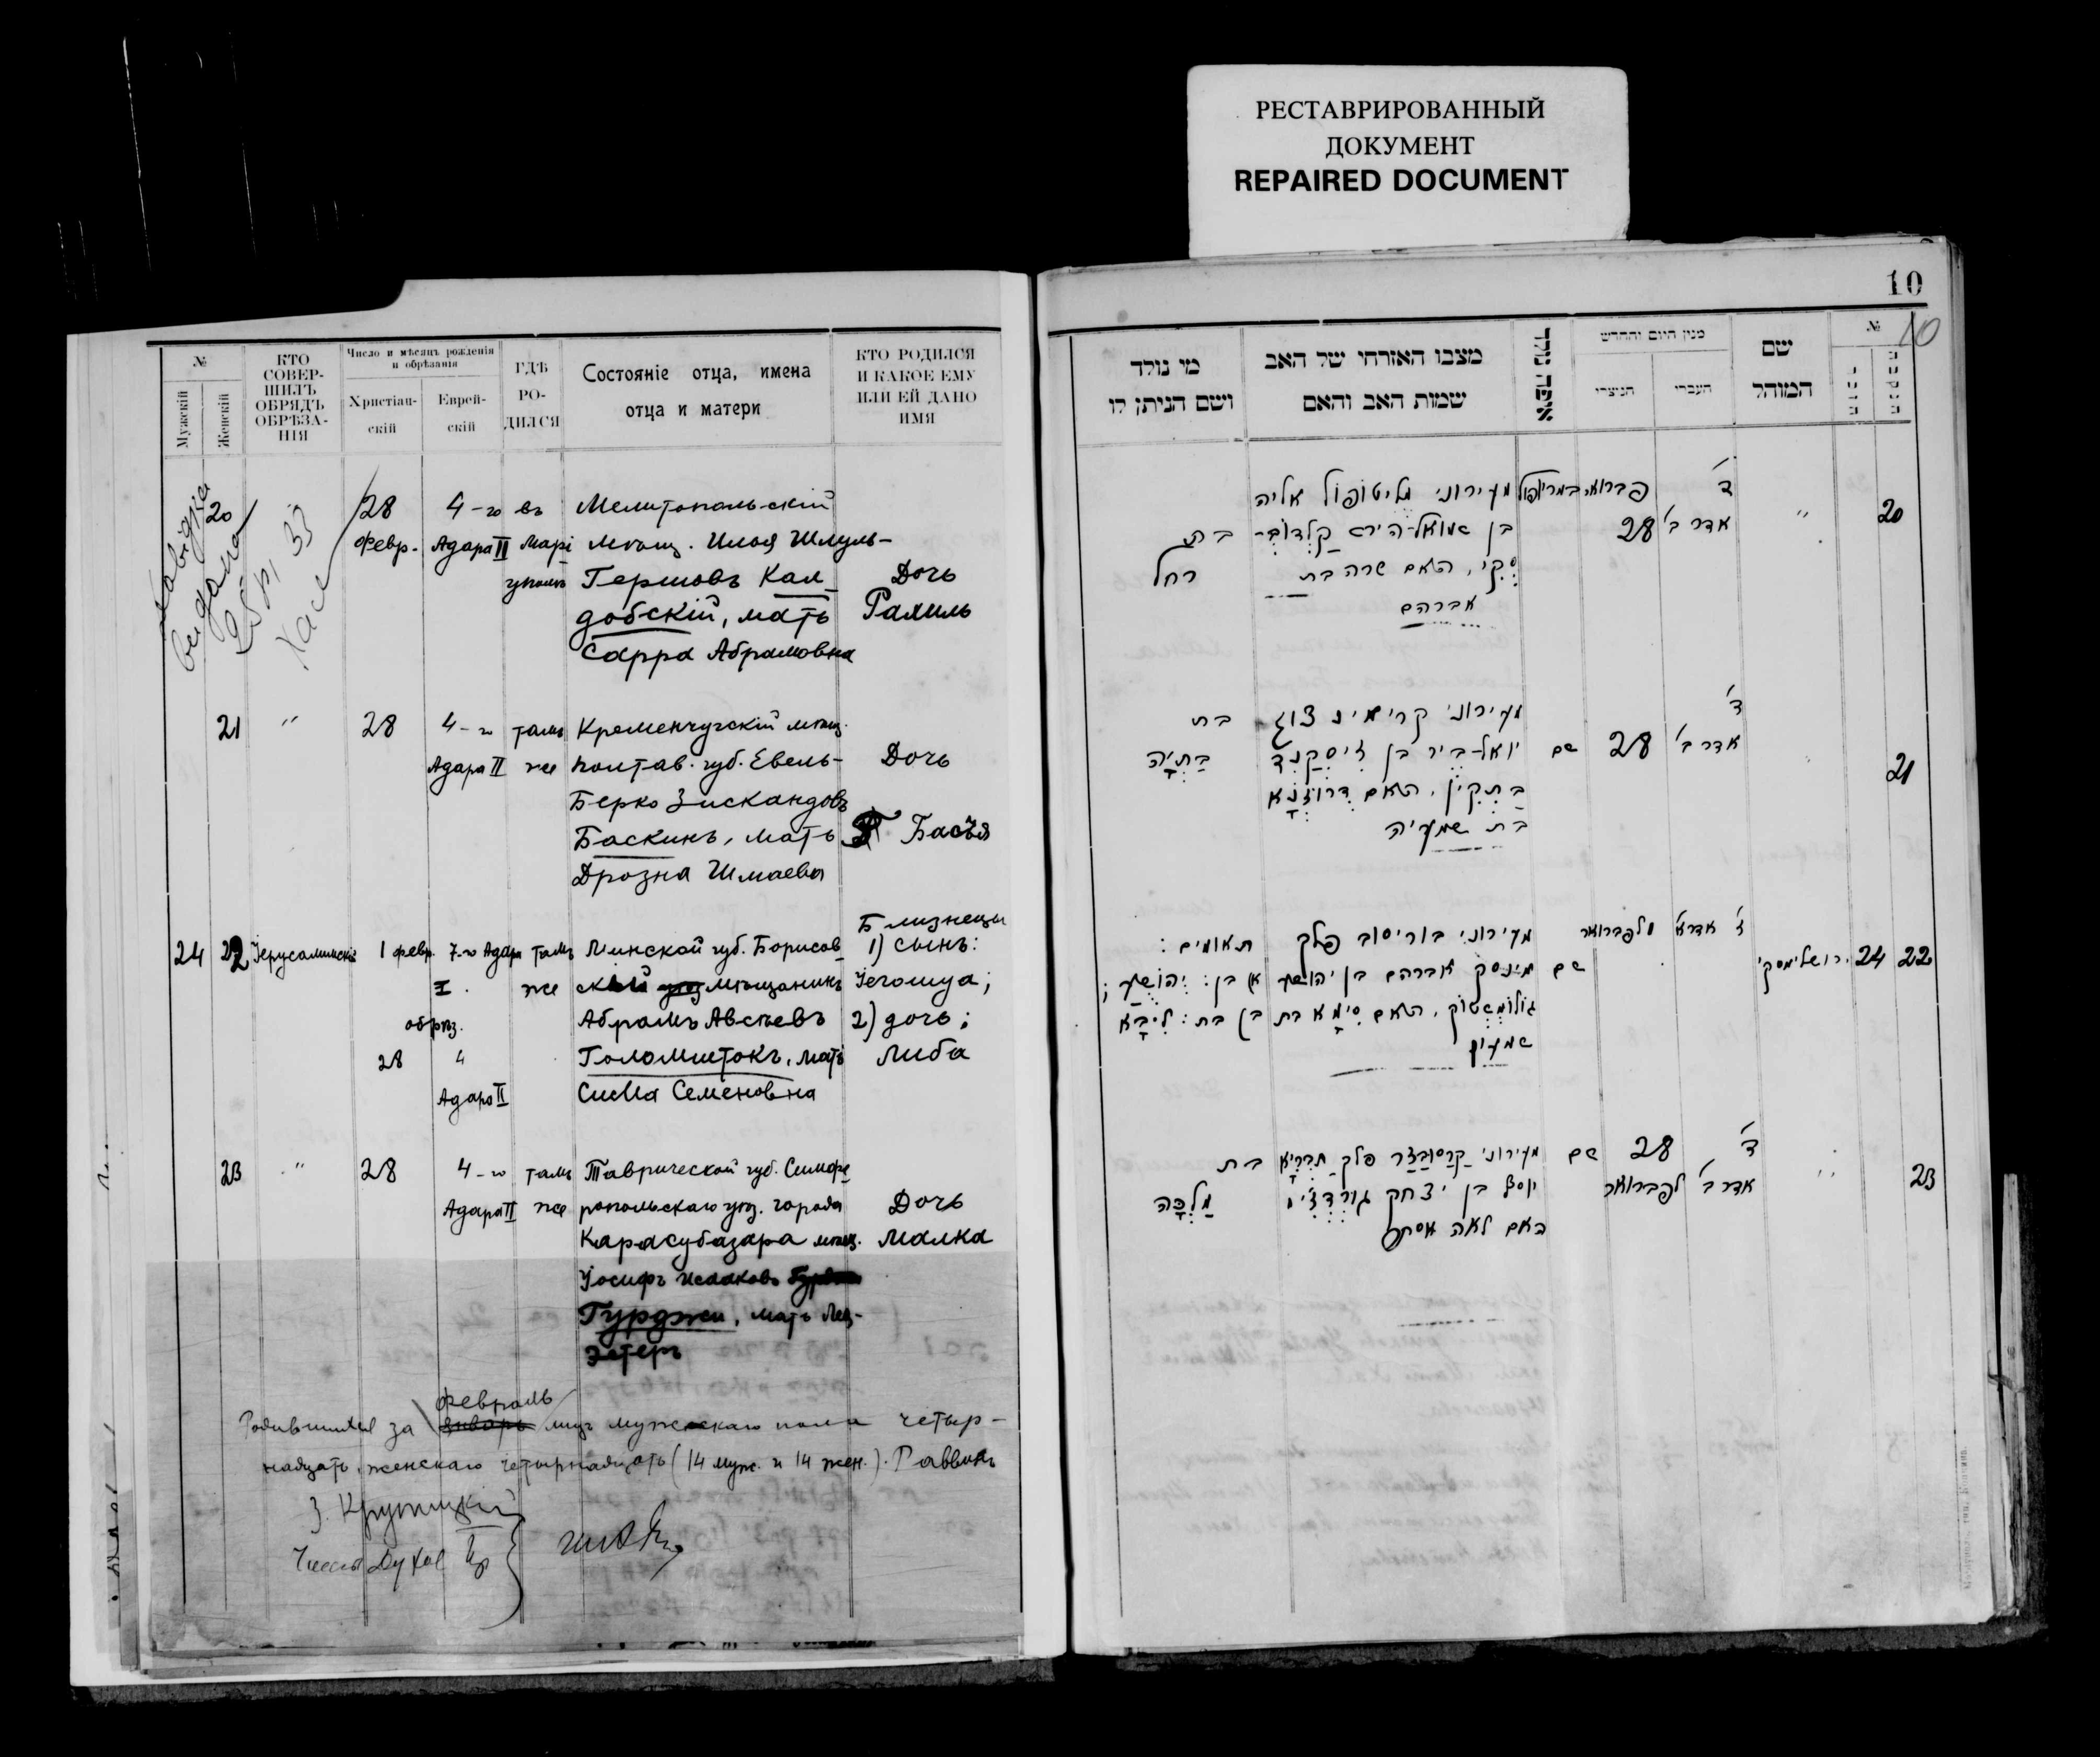 РЕСТАВРИРОВАННЫЙ
ДОКУМЕНТ
REPAIRED DOCUMENT
№
Мужскій
Женскій
КТО
СОВЕР-
ШИЛЪ
ОБРЯДЪ
ОБРѢЗА-
НІЯ
Число и мѣсяцъ рожденія
и обрѣзанія
Христіан-
скій
Еврей-
скій
ГДѢ
РО-
ДИЛСЯ
Состояніе отца, имена
отца и матери
КТО РОДИЛСЯ
И КАКОЕ ЕМУ
ИЛИ ЕЙ ДАНО
ИМЯ
20
28
Февр.
4-го
Адара II
въ
Марі
уполѣ
Мелитопольскій
мѣщ. Илья Шмуль-
Гершовъ Кал
добскій, мать
Сарра Абрамовна
Дочь
Рахиль
21
"
28
4-го
Адара II
тамъ
же
Кременчугскій мѣщ.
Полтав. губ. Евель-
Берко Зискандовъ
Баскинъ, мать
Дрозна Шмаева
Дочь
Басъя
24
22
Іерусалимскі
1 февр.
7-го Адара
I
обрѣз.
28
4
Адара II
тамъ
же
Минской губ. Борисов
скій мѣщанинъ
Абрамъ Авсѣевъ
Голомштокъ, мать
Сима Семеновна
Близнецы
1) сынъ:
Іегошуа;
2) дочь:
Либа
23
"
28
4-го
Адара II
тамъ
же
Таврической губ. Симфе
ропольскаго уѣз. города
Карасубазара мѣщ.
Іосифъ Исааковъ
Гурджи, мать Лея-
Эстеръ
Дочь
Малка
февраль
Родившихся за январь мца мужескаго пола четыр-
надцать, женскаго четырнадцать (14 муж. и 14 жен.). Раввинъ
З. Крупицкій
10
10
№
שם
המוהל
מנין היום והחדש
העברי
הנוצרי
איפה נולד
מצבו האזרחי של האב
שמות האב והאם
מי נולד
ושם הניתן לו
20
"
ד'
אדר ב'
פברואר
28
במריופול
מעירוני מליטופול אליה
בן שמואל-הירש קלדוב-
סקי, האם שרה בת
אברהם
בת
רחל
21
ד'
אדר ב'
28
שם
מעירוני קרימינצוג
יואל-ביר בן זיסקנד
בתקין, האם דרוזנא
בת שמעיה
בת
בתיה
22
24
ירושלימסקי
ז' אדר א'
1 לפברואר
שם
מעירוני בוריסוב פלך
מינסק אברהם בן יהושע
גולומשטוק, האם סימא בת
שמעון
תאומים:
א) בן: יהושע;
ב) בת: ליבא
23
"
ד'
אדר ב'
28
לפברואר
שם
מעירוני קרסובזר פלך תבריא
יוסף בן יצחק גורדזי
האם לאה אסתר
בת
מלכה